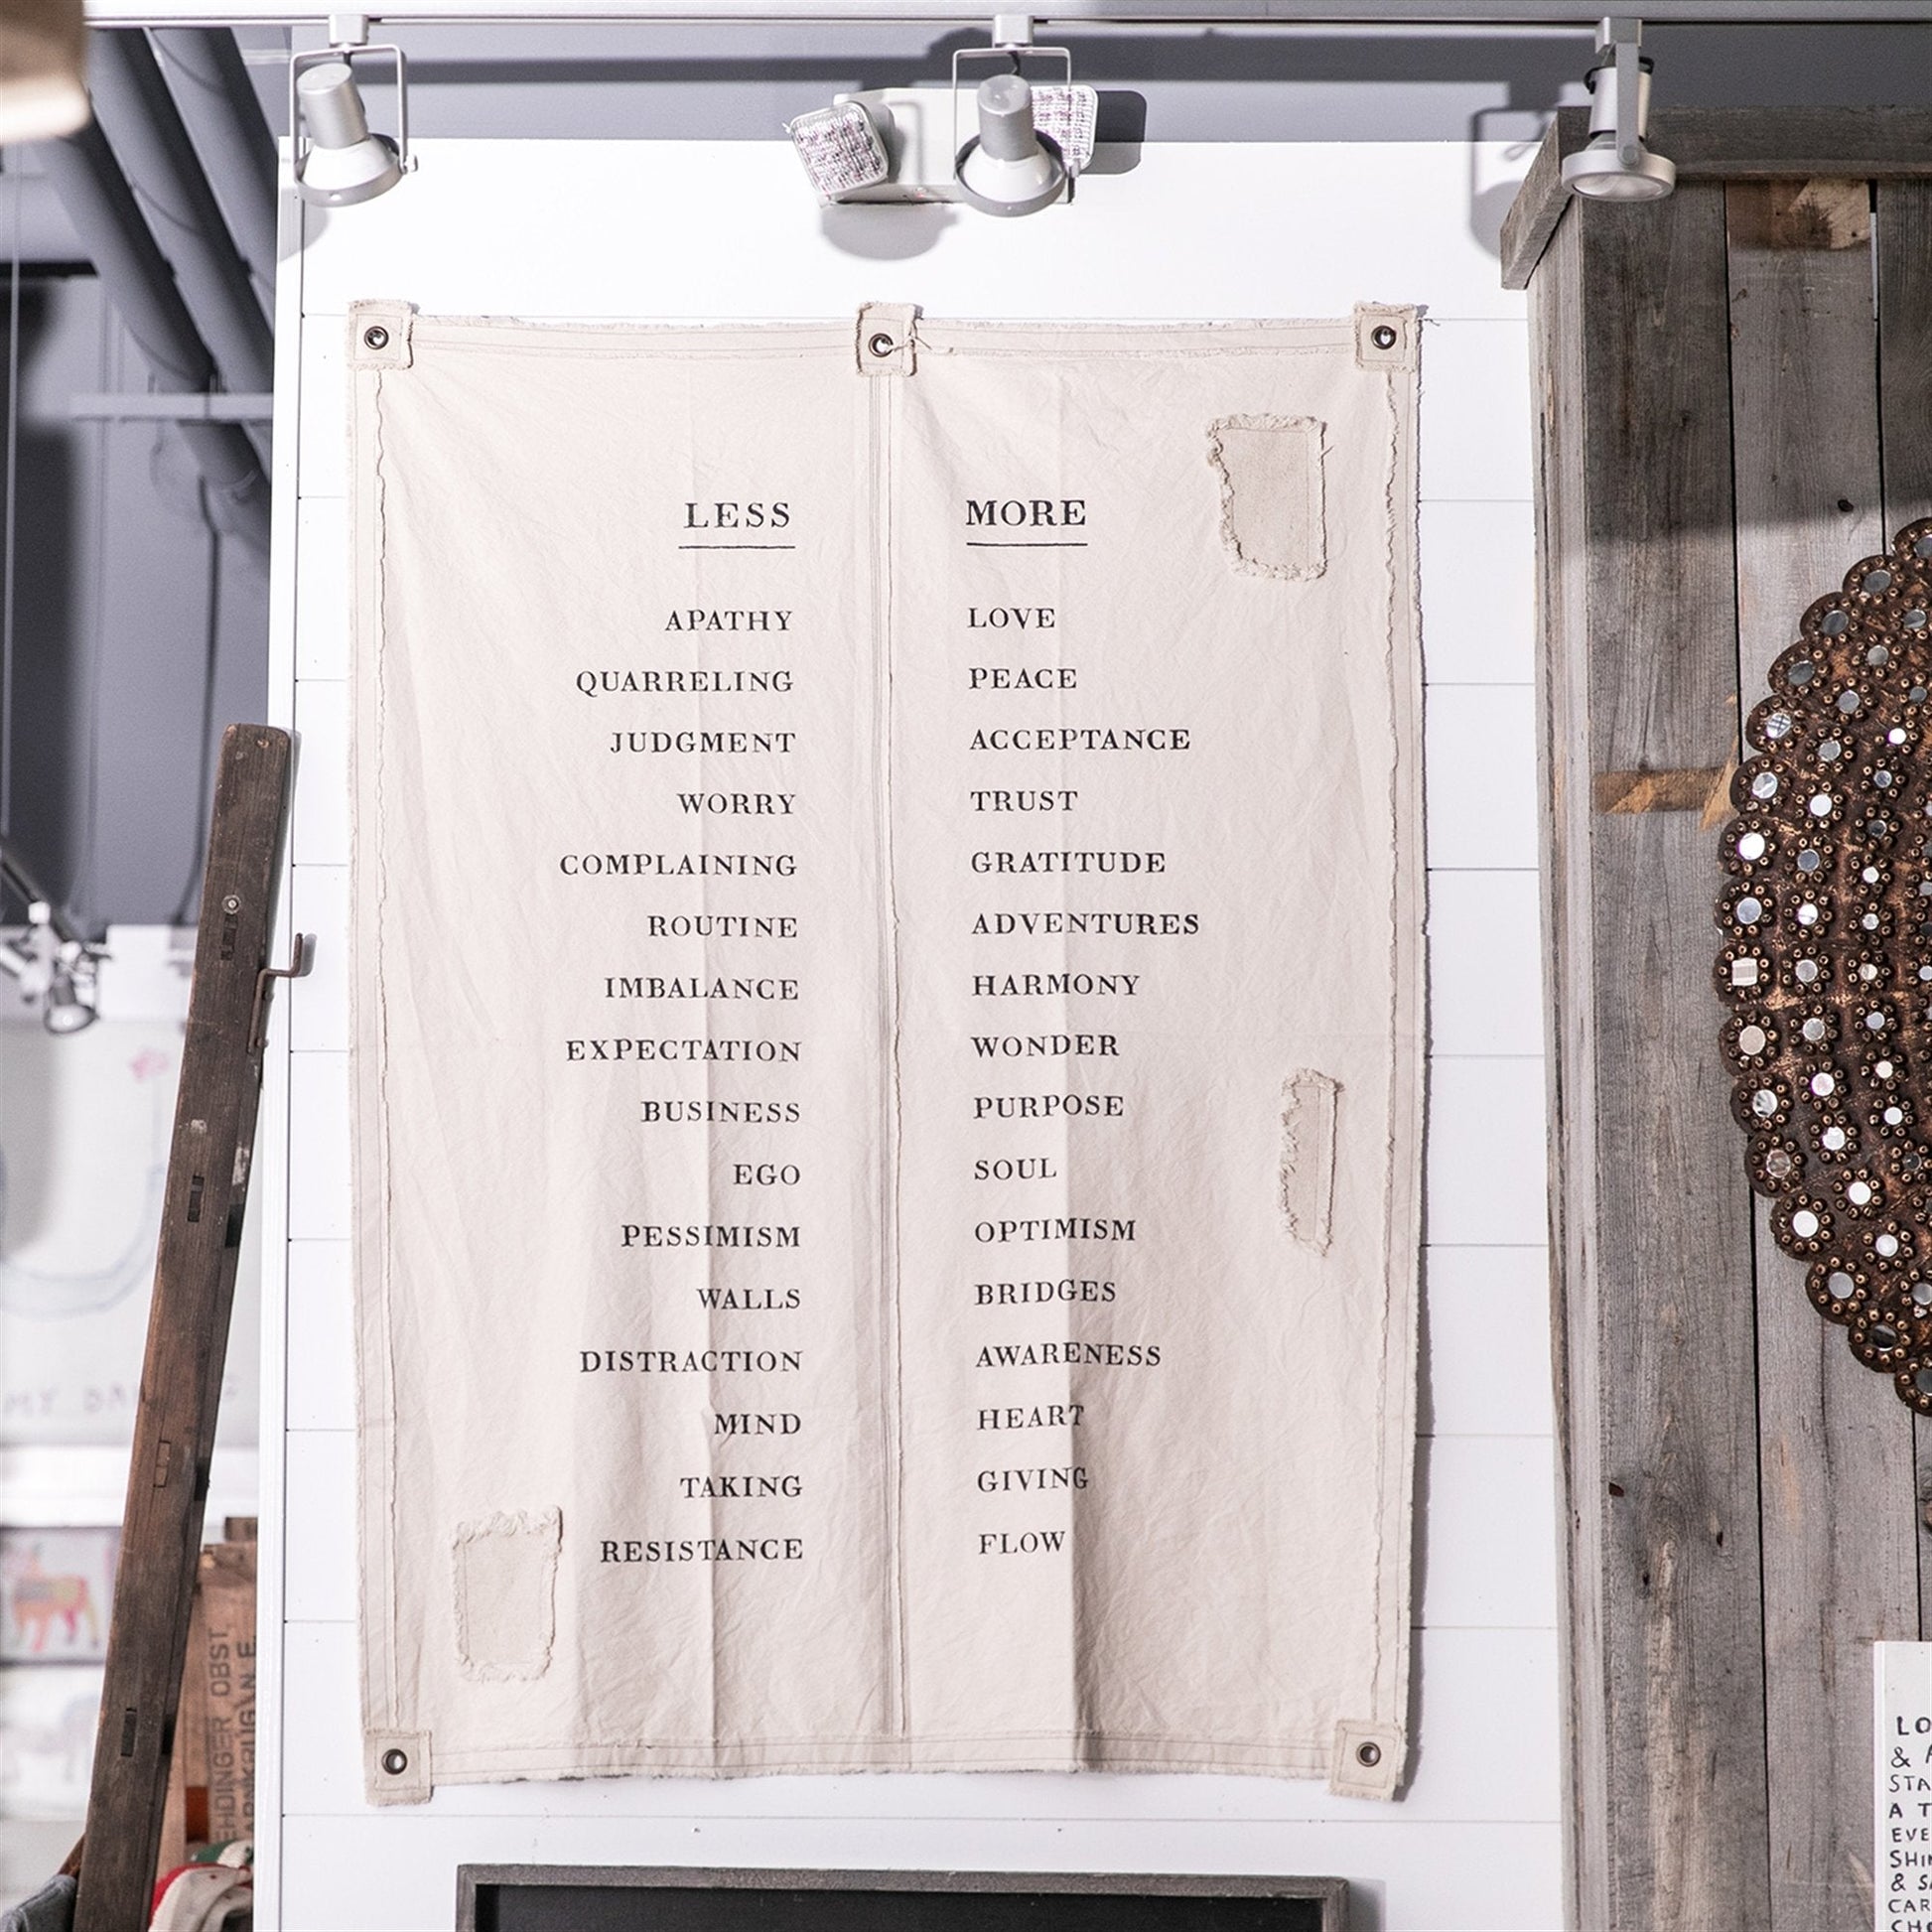 LESS MORE
APATHY LOVE
QUARRELING PEACE
JUDGMENT ACCEPTANCE
WORRY TRUST
COMPLAINING GRATITUDE
ROUTINE ADVENTURES
IMBALANCE HARMONY
EXPECTATION WONDER
BUSINESS PURPOSE
EGO SOUL
PESSIMISM OPTIMISM
WALLS BRIDGES
DISTRACTION AWARENESS
MIND HEART
TAKING GIVING
RESISTANCE FLOW
MY
OBST
LO
&
STA
A T
EVE
SHI
& S
CAR